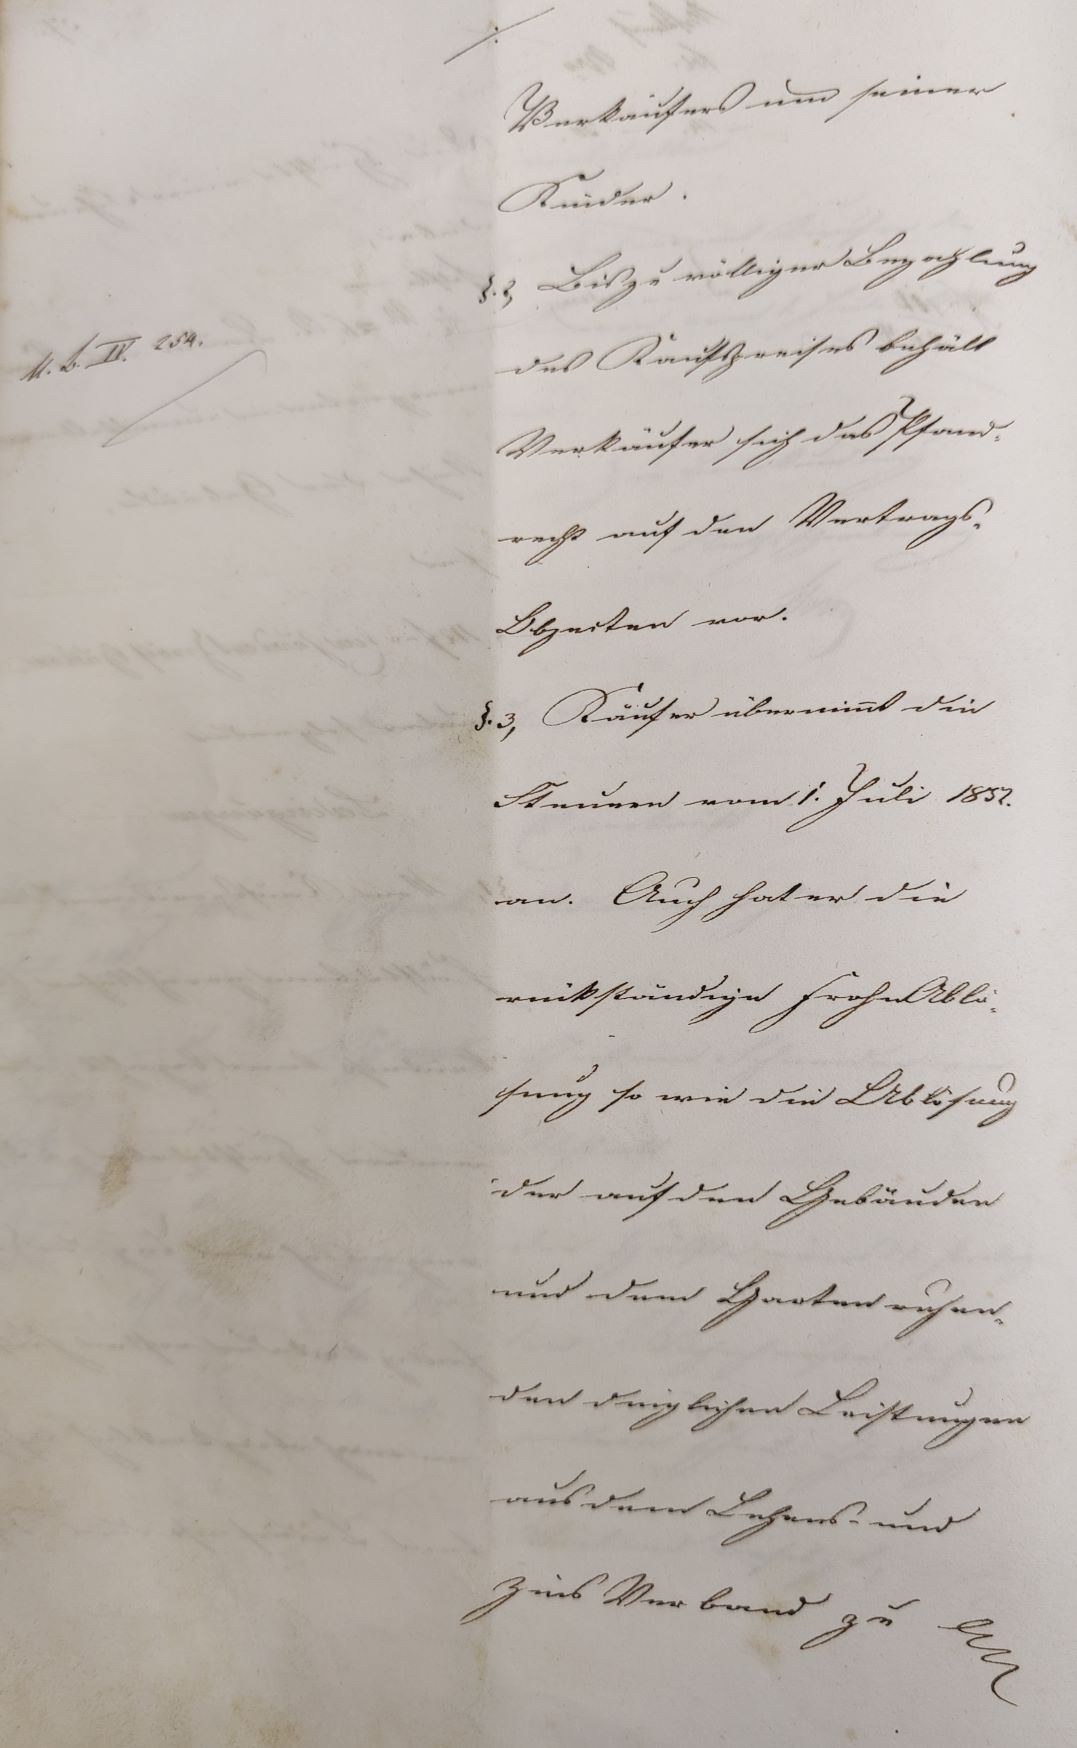 Verkäufers und seiner
Kinder.
§. 2, Bis zu völliger Bezahlung
des Kaufspreises behält
U. B. IV. 254.
Verkäufer sich das Pfand-
recht auf den Vertrags-
Objecten vor.
§. 3, Käufer übernimmt die
Steuern vom 1. Juli 1852.
an. Auch hat er die
rückständige Frohn Ablö-
sung so wie die Ablösung
der auf den Gebäuden
und dem Garten ruhen-
den dinglichen Leistungen
aus dem Lehens- und
Zins Verband zu